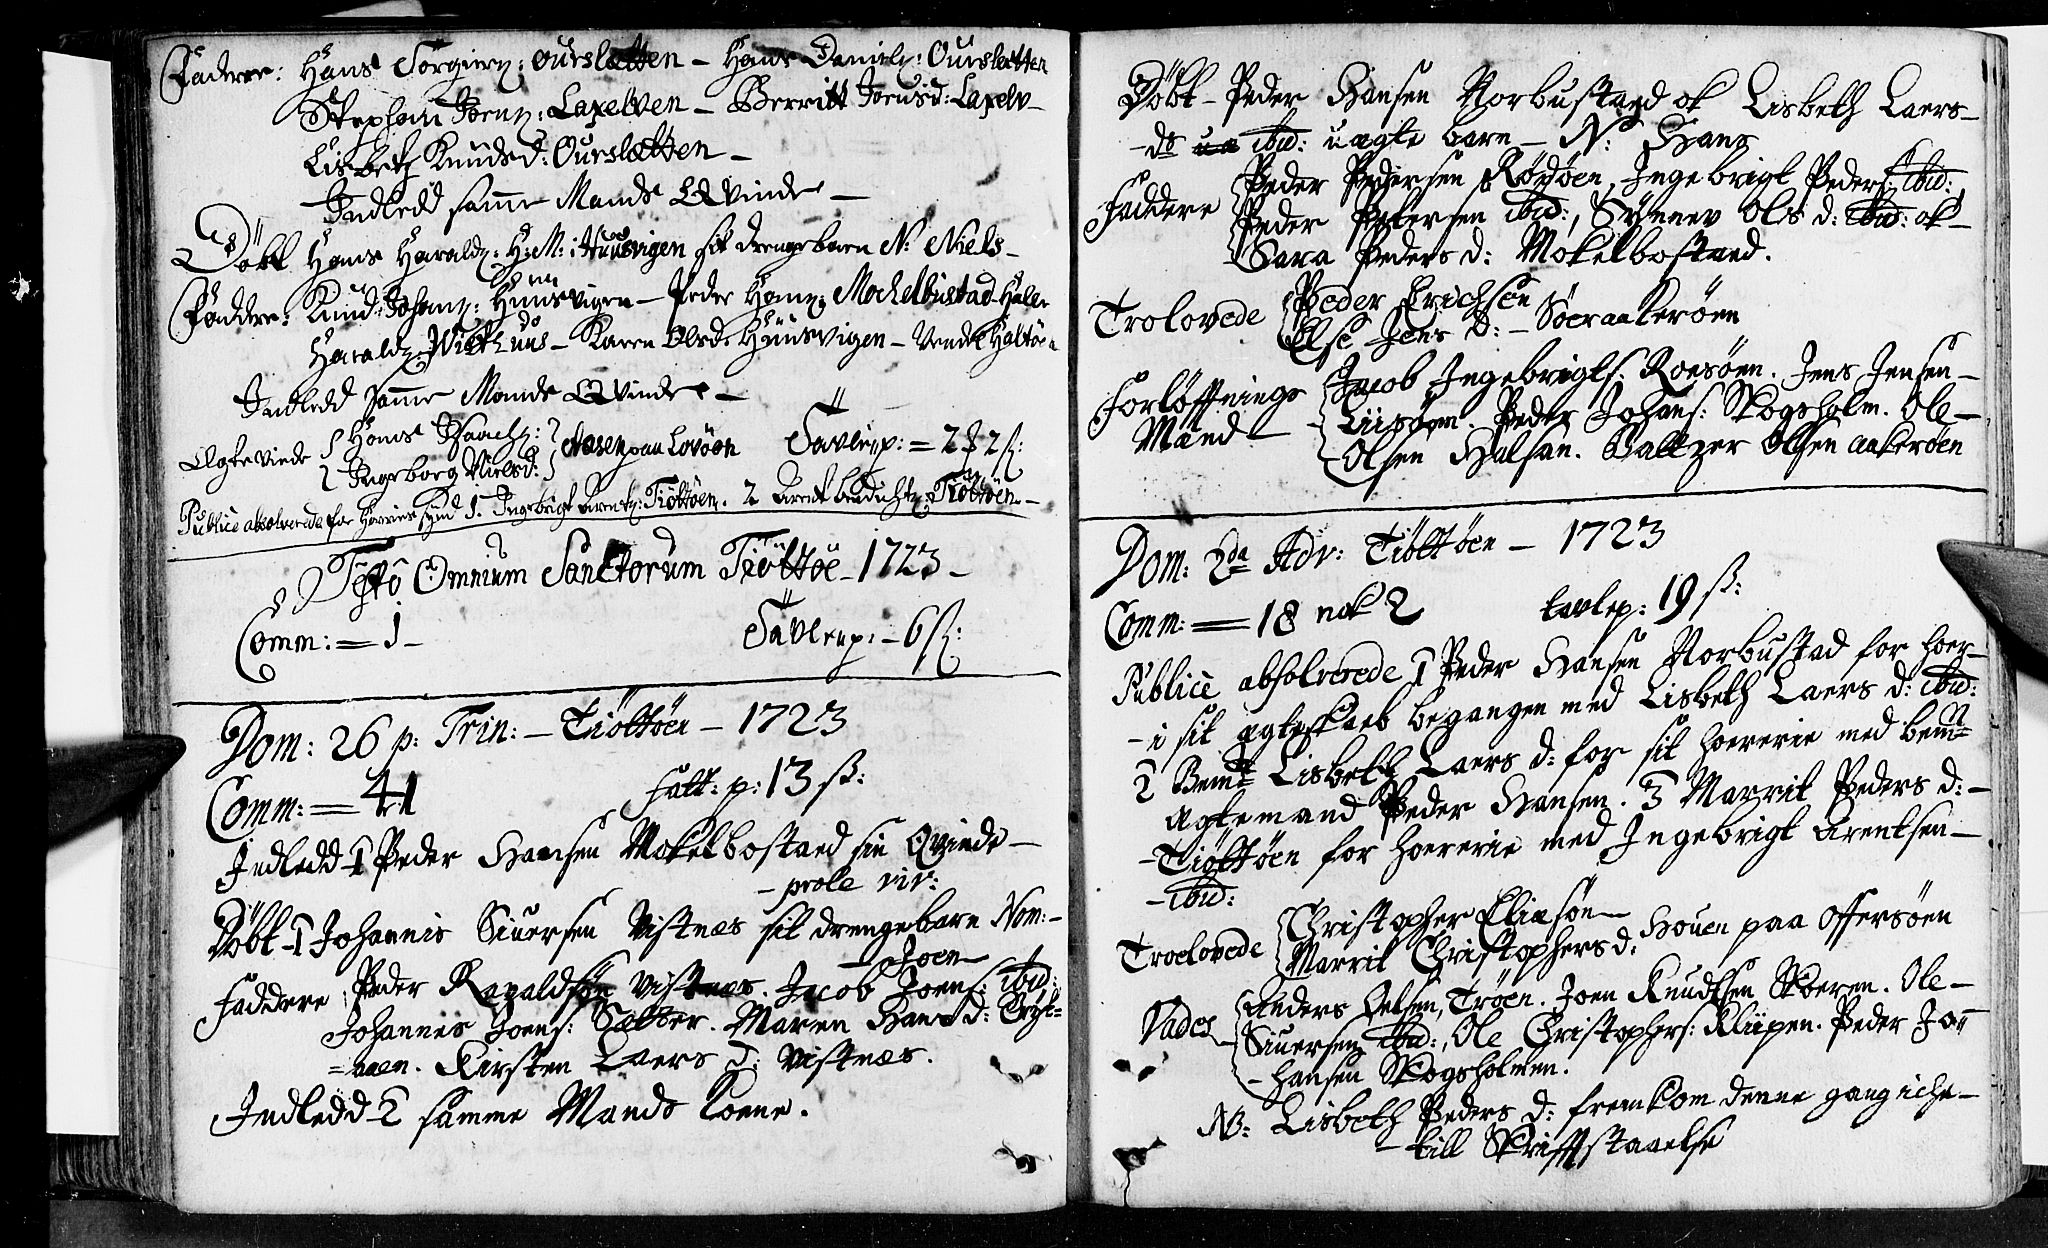 Faderre: Hans Jørgens: Ourslætten – Hans Daniels: Ourslætten
Stephan Joens: Laxelven – Berritt Joensd: Laxelv–
Lisbeth Knudsd: Ourslætten –
Indledd samme Mands Qvinde –
Døbt Hans Haralds: H: M: i Huusvigen sit drengebarn N: Niels –
Faddre: Knud Johans: Huusvigen – Peder Hans: Mochelbustad Haler
Haralds: Vistnus – Karen Olsd: Huusvigen – Vendel Haltøen
Indledd samme Mands Qvinde –
Ægteviede { Hans Isachs: } Aasen paa Lovøen Tavlep: = 2 ß:
{ Ingeborg Nielsd: }
Publice absolverede for Horries synd 1. Ingebrigt Arents: Tiøttøen. 2 Arent Bendichts: Tiøttøen –
Festo Omnium Sanctorum Tiøttøe – 1723 –
Comm: = 1 – Tavlep: – 6 ß:
Dom: 26 p: Trin: – Tiøttøen – 1723
Comm: = 41 Fatt: p: 13 ß:
Indledd 1 Peder Hansen Mokelbostaed sin Qvinde –
– prole viv:
Døbt – 1 Johannis Siuersen Vistnæs sit drengebarn Nom: –
– Joen –
Faddere Peder Rapaldsøn Vistnæs. Jacob Joens: ibid:
Johannes Joens: Sætter. Maren Hans d:
= aaen. Kirsten Laers d: Vistnæs.
Indledd – 2 samme Mands Koene.
Døbt – Peder Hansen Norbustaed ok Lisbeth Laers –
– ds ibid: uægte barn – N: Hans
Faddere { Peder Pedersen Rødøen, Ingebrigt Peders: ibid:
Peder Petersen ibid:, Synnev Ols d: ibid: ok –
Sara Peders d: Mokelbostaed.
Trolovede { Peder Erichsen
Else Jens d: – Søeraakerøen
Forløffnings { Jacob Ingebrigts: Roesøen. Jens Jensen –
Mænd – – Peder Johans: Skogsholm. Ole –
– Olsen Halsan. Baltzer Olsen aakerøen
Dom: 2da Adv: Tiøttøen – 1723
Comm: = 18 nok 2 tavlep: 19 ß:
Publice absolverede 1 Peder Hansen Norbustad for hoer –
– i sit ægteskaeb begangen med Lisbeth Laers d: ibid:
2 Bemte Lisbeth Laers d: for sit hoererie med bem=
ægtemand Peder Hansen. 3 Marrit Peders d: –
– Tiøttøen for hoererie med Ingebrigt Arentsen –
– ibid:
Troelovede { Christopher Eliæsøn –
Marrit Christophersd: Houen paa Offersøen
Vades { Anders Oelsen, Trøen. Joen Knudtsen Skoeren. Ole –
Siuersen ibid:, Ole Christophers: Kliipen. Peder Jo=
– hansen Skogsholmen.
NB: Lisbeth Peders d: fremkom denne gang iche –
– till Skrifftstaaelse